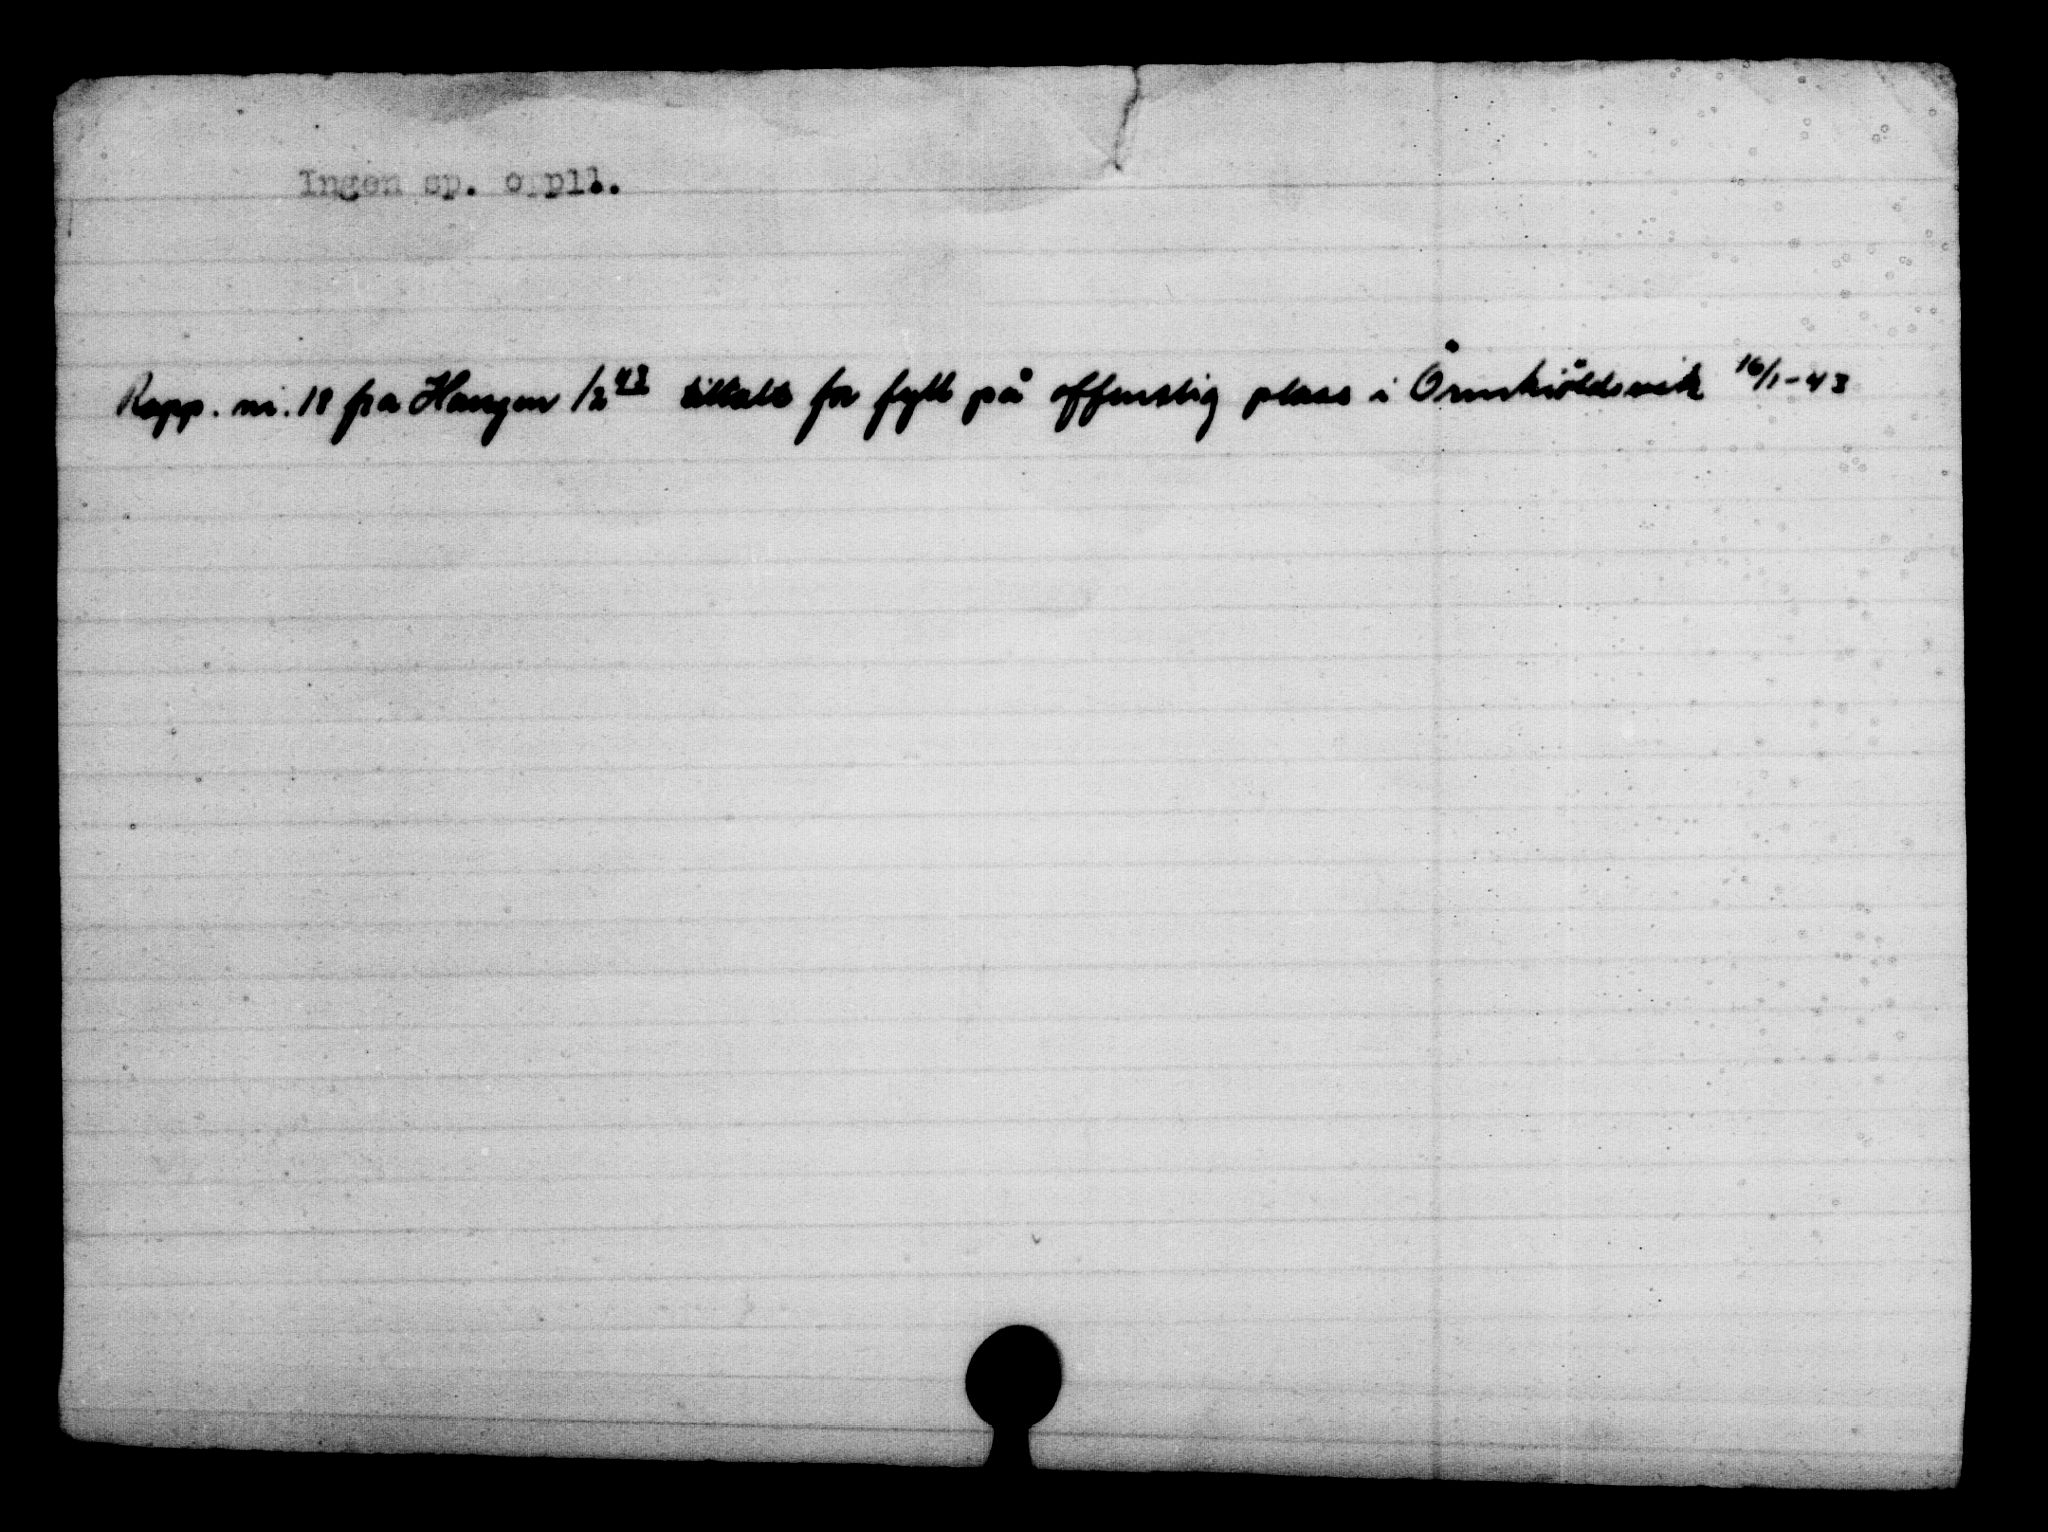 Ingen sp. oppll.
Rapp. nr. 18 fra Haugen /2 43 tiltalt for fyll på offentlig plass i Örnskiöldsvik 16/1-43